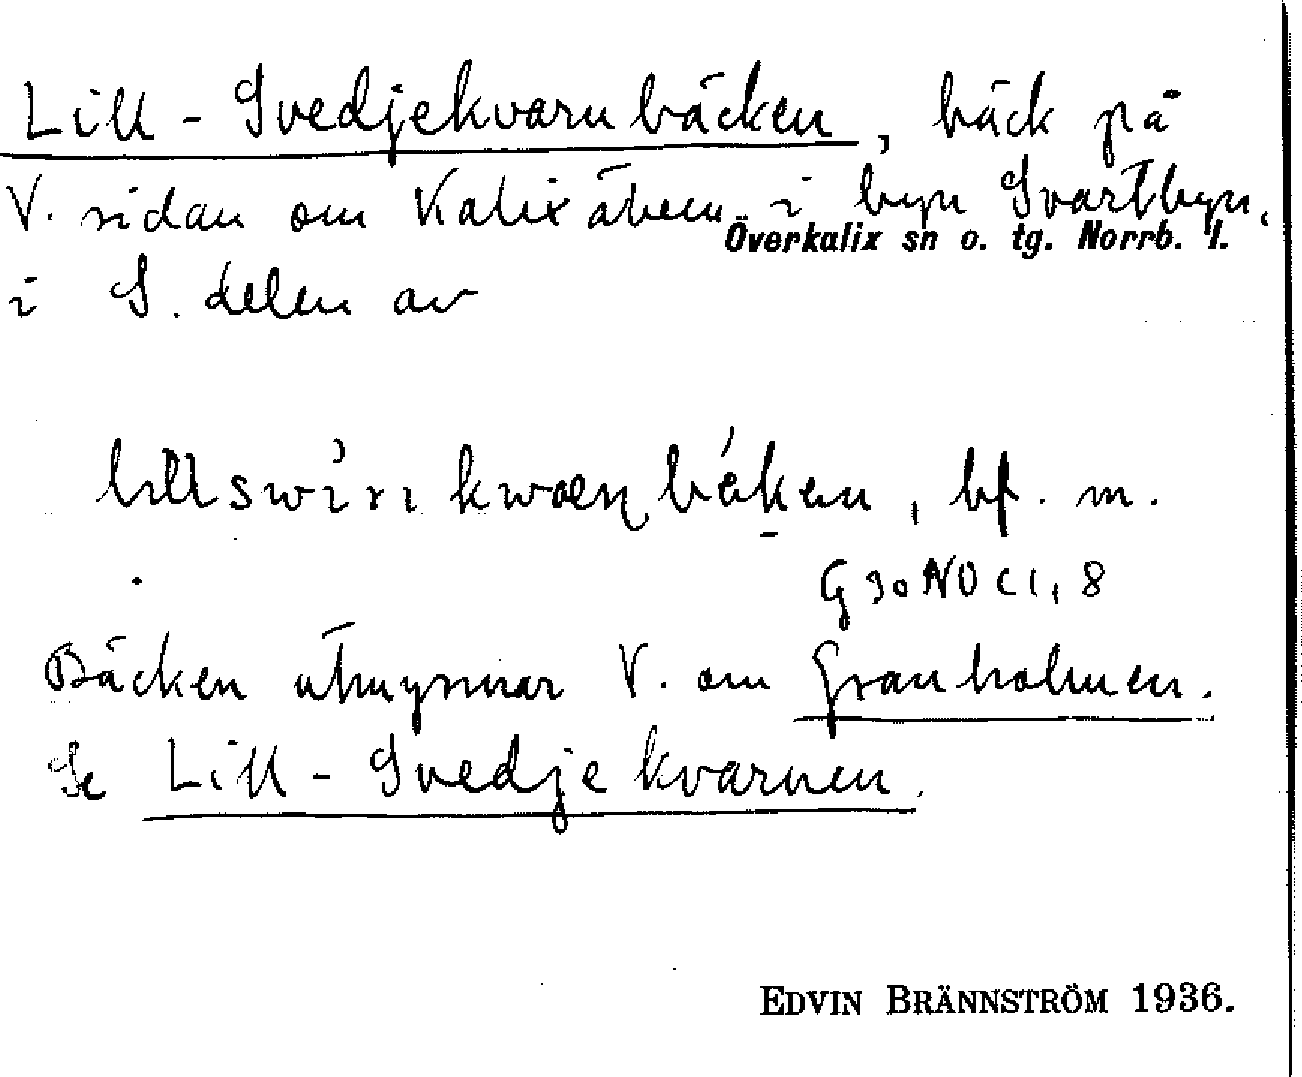 Lill-Svedjekvarnbäcken, bäck på
V. sidan om Kalixälven i byn Svartbyn,
Överkalix sn o. tg. Norrb. l.
i S. delen av
bf. m.
G 30 NO c 1, 8
Bäcken utmynnar V. om Granholmen.
Se Lill-Svedjekvarnen.
EDVIN BRÄNNSTRÖM 1936.